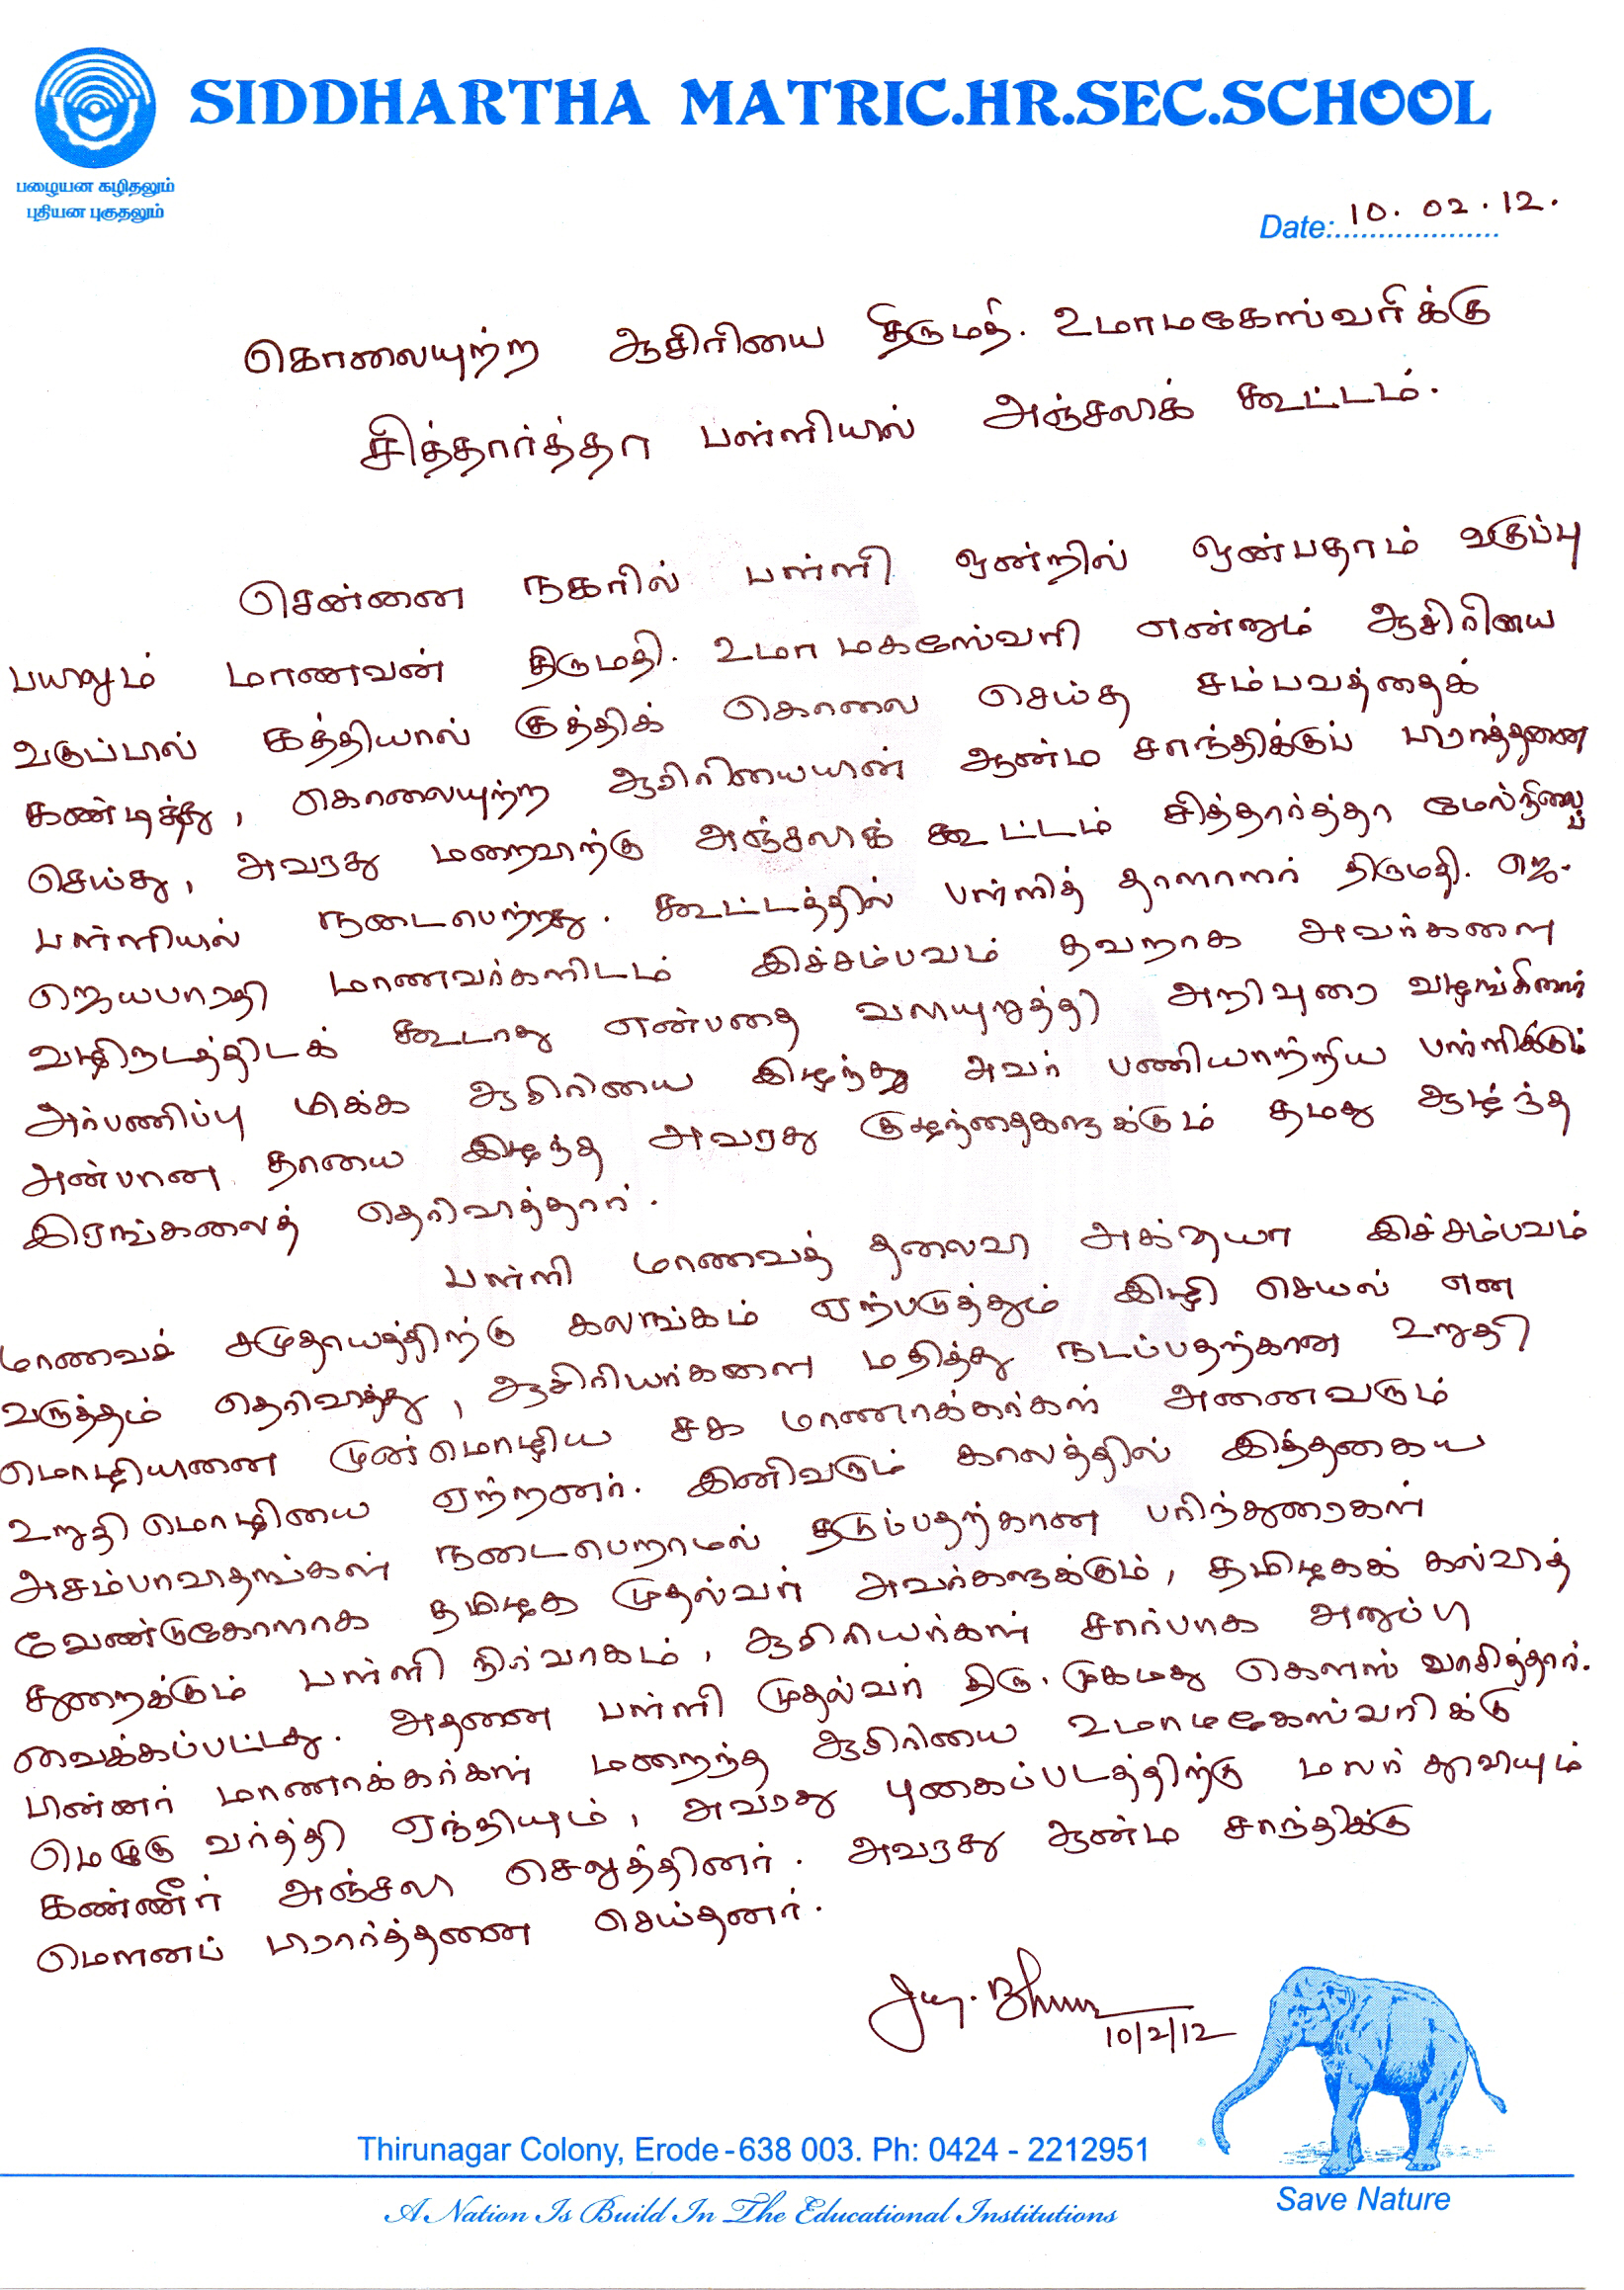 SIDDHARTHA MATRIC.HR.SEC.SCHOOL
பழையன கழிதலும்
புதியன புகுதலும்
Date:.................... 10.02.12.
கொலையுற்ற ஆசிரியை திருமதி. உமாமகேஸ்வரிக்கு
சித்தார்த்தா பள்ளியில் அஞ்சலிக் கூட்டம்.
சென்னை நகரில் பள்ளி ஒன்றில் ஒன்பதாம் வகுப்பு
பயிலும் மாணவன் திருமதி. உமா மகஸேவரி என்னும் ஆசிரியை
வகுப்பில் கத்தியால் குத்திக் கொலை செய்த சம்பவத்தைக்
கண்டித்து, கொலையுற்ற ஆசிரியையின் ஆன்ம சாந்திக்குப் பிரார்த்தனை
செய்து, அவரது மறைவிற்கு அஞ்சலிக் கூட்டம் சித்தார்த்தா மேல்நிலைப்
பள்ளியில் நடைபெற்றது. கூட்டத்தில் பள்ளித் தாளாளர் திருமதி. ஜெ.
ஜெயபாரதி மாணவர்களிடம் இச்சம்பவம் தவறாக அவர்களை
வழிநடத்திடக் கூடாது என்பதை வலியுறுத்தி அறிவுரை வழங்கினார்
அர்பணிப்பு மிக்க ஆசிரியை இழந்து அவர் பணியாற்றிய பள்ளிக்கும்
அன்பான தாயை இழந்த அவரது குழந்தைகளுக்கும் தமது ஆழ்ந்த
இரங்கலைத் தெரிவித்தார்.
பள்ளி மாணவத் தலைவி அக்‌ஷயா இச்சம்பவம்
மாணவச் சமுதாயத்திற்கு களங்கம் ஏற்படுத்தும் இழி செயல் என
வருத்தம் தெரிவித்து, ஆசிரியர்களை மதித்து நடப்பதற்கான உறுதி
மொழியினை முன்மொழிய சக மாணாக்கர்கள் அனைவரும்
உறுதி மொழியை ஏற்றனர். இனிவரும் காலத்தில் இத்தகைய
அசம்பாவிதங்கள் நடைபெறாமல் தடுப்பதற்கான பரிந்துரைகள்
வேண்டுகோளாக தமிழக முதல்வர் அவர்களுக்கும், தமிழகக் கல்வித்
துறைக்கும் பள்ளி நிர்வாகம், ஆசிரியர்கள் சார்பாக அனுப்பி
வைக்கப்பட்டது. அதனை பள்ளி முதல்வர் திரு. முகமது கௌஸ் வாசித்தார்.
பின்னர் மாணாக்கர்கள் மறைந்த ஆசிரியை உமாமகேஸ்வரிக்கு
மெழுகு வர்த்தி ஏந்தியும், அவரது புகைப்படத்திற்கு மலர் தூவியும்
கண்ணீர் அஞ்சலி செலுத்தினர். அவரது ஆன்ம சாந்திக்கு
மௌனப் பிரார்த்தனை செய்தனர்.
10/2/12
Thirunagar Colony, Erode-638 003. Ph: 0424 - 2212951
A Nation Is Build In The Educational Institutions
Save Nature